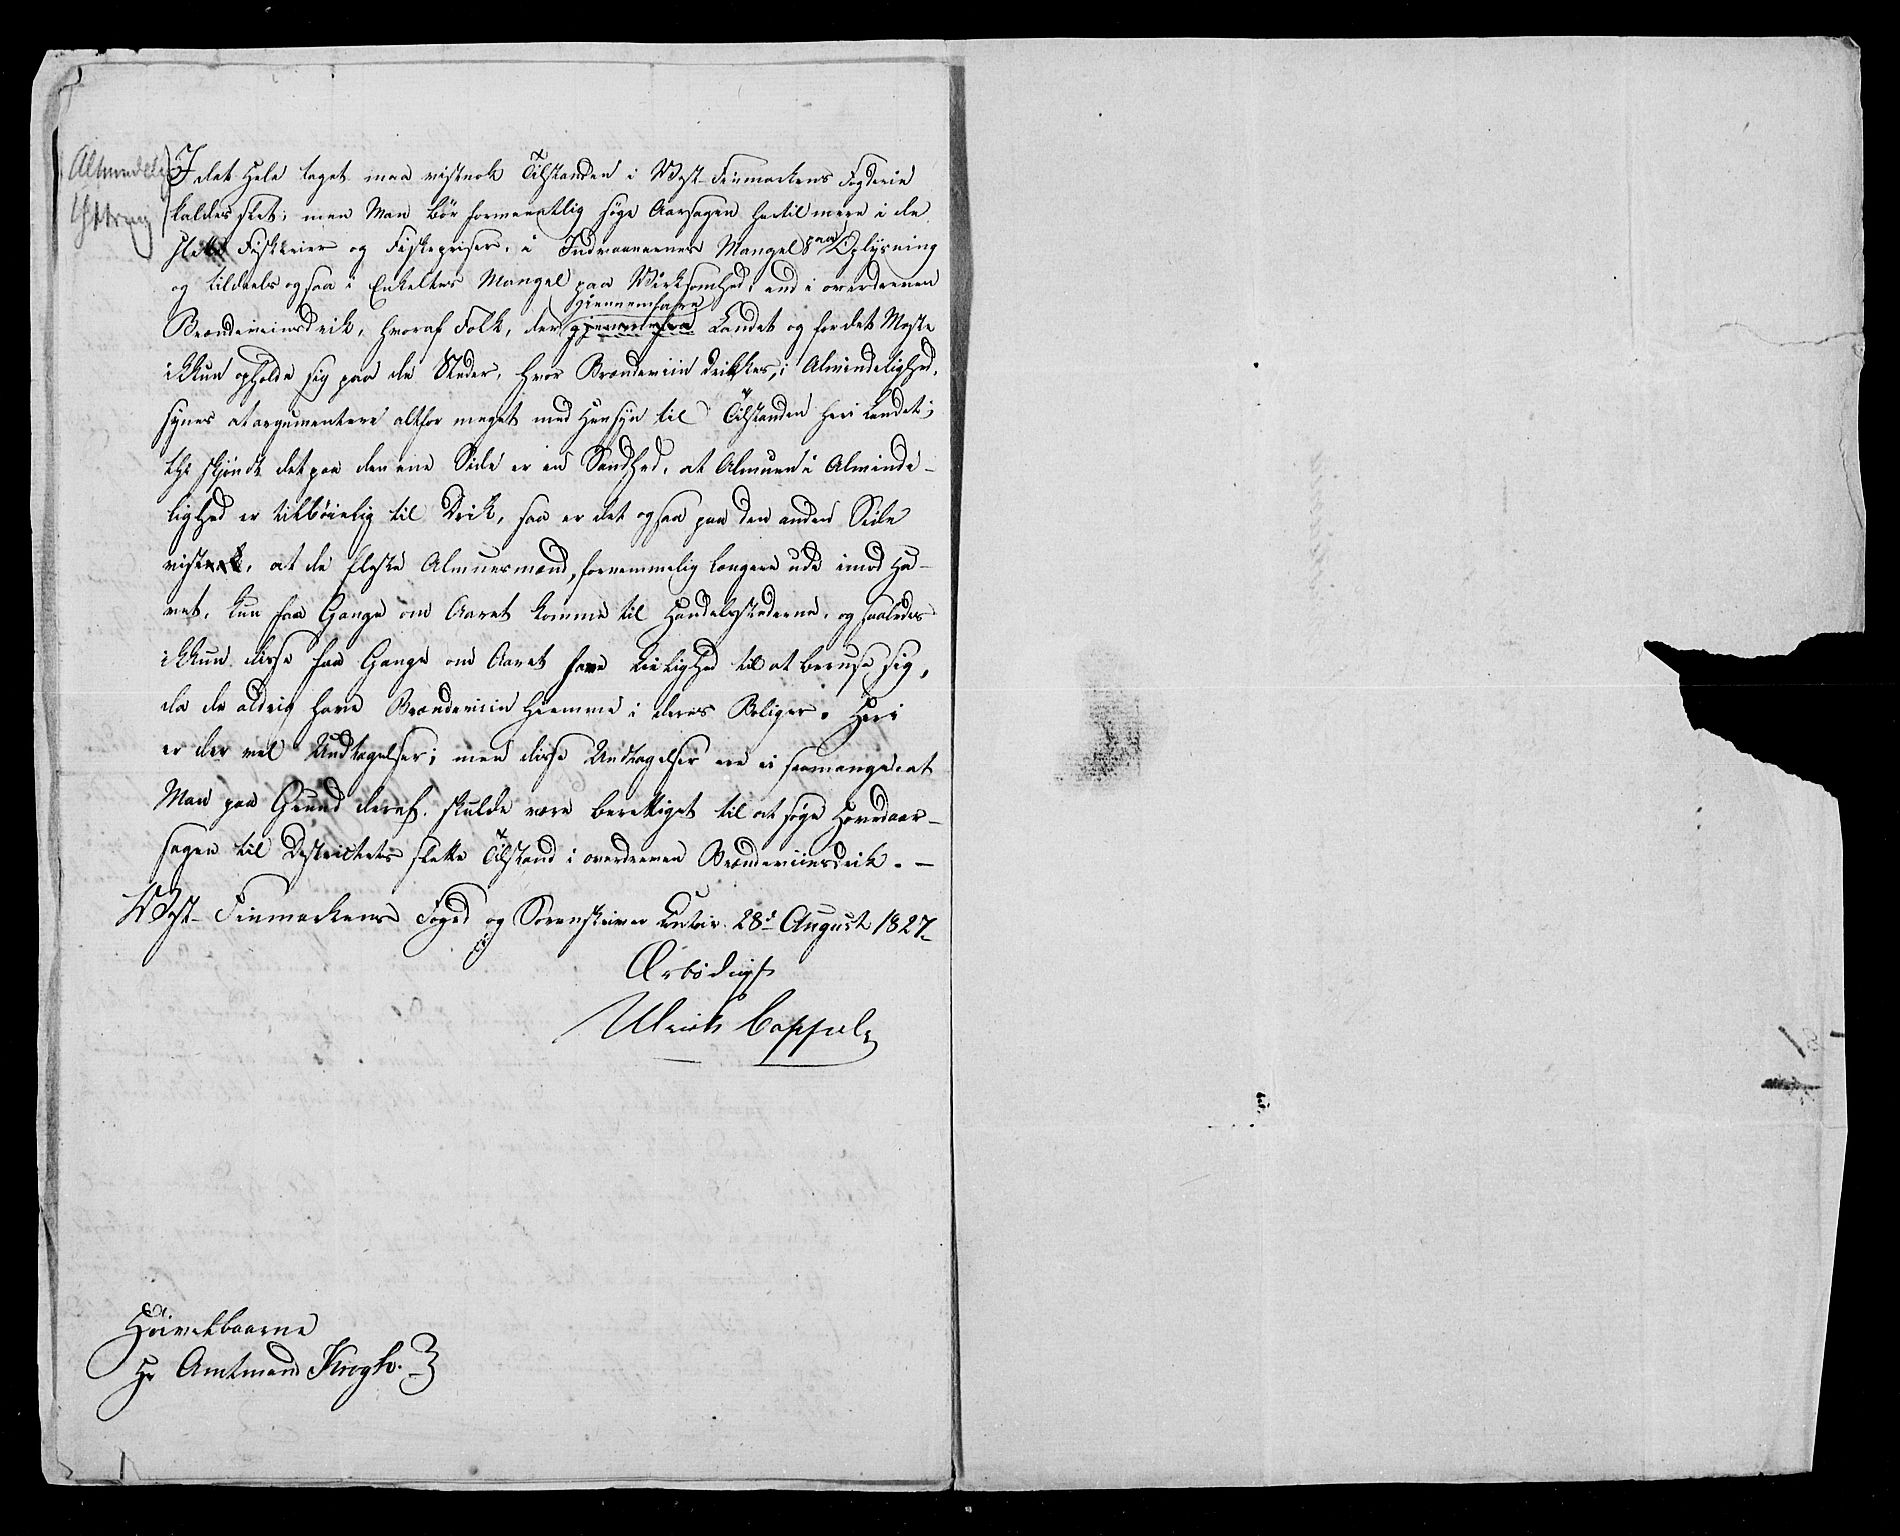 Almindelig
Yttring
I det Hele taget maa vistnok Tilstanden i Vest-Finmarkens Fogderie
kaldes slet; men Man bør formeentlig søge Aarsagen hertil mere i de
slette Fiskerier og Fiskepriser, i Indvaanernes Mangel paa Oplysning
og tildeels ogsaa i Enkeltes Mangel paa Virksomhed, end i overdreven
Brændeviinsdrik, hvoraf Folk, der gjennemfare Landet og for det Meste
ikkun opholde sig paa de Steder, hvor Brændeviin drikkes, i Almindelighed,
synes at argumentere altfor meget med Hensyn til Tilstanden her i Landet;
thi skjøndt det paa den ene Side er en Sandhed, at Almuen i Alminde-
lighed er tilbøielig til Drik, saa er det ogsaa paa den anden Side
vist, at de fleste Almuesmænd, fornemmelig længere ude imod Ha-
vet, kun faa Gange om Aaret komme til Handelsstederne, og saaledes
ikkun disse faa Gange om Aaret have Leilighed til at beruse sig,
da de aldrig have Brændeviin hjemme i deres Boliger. Heri
er der vel Undtagelser; men disse Undtagelser ere ei saamange at
Man paa Grund deraf skulde være berettiget til at søge Hovedaar-
sagen til Districtets slette Tilstand i overdreven Brændeviinsdrik. -
West-Finmarkens Foged og Sorenskriver Contoir 28d August 1827.
Ærbødigst
Ulrich Cappelen
Høivelbaarne
Hr Amtmand Krogh.